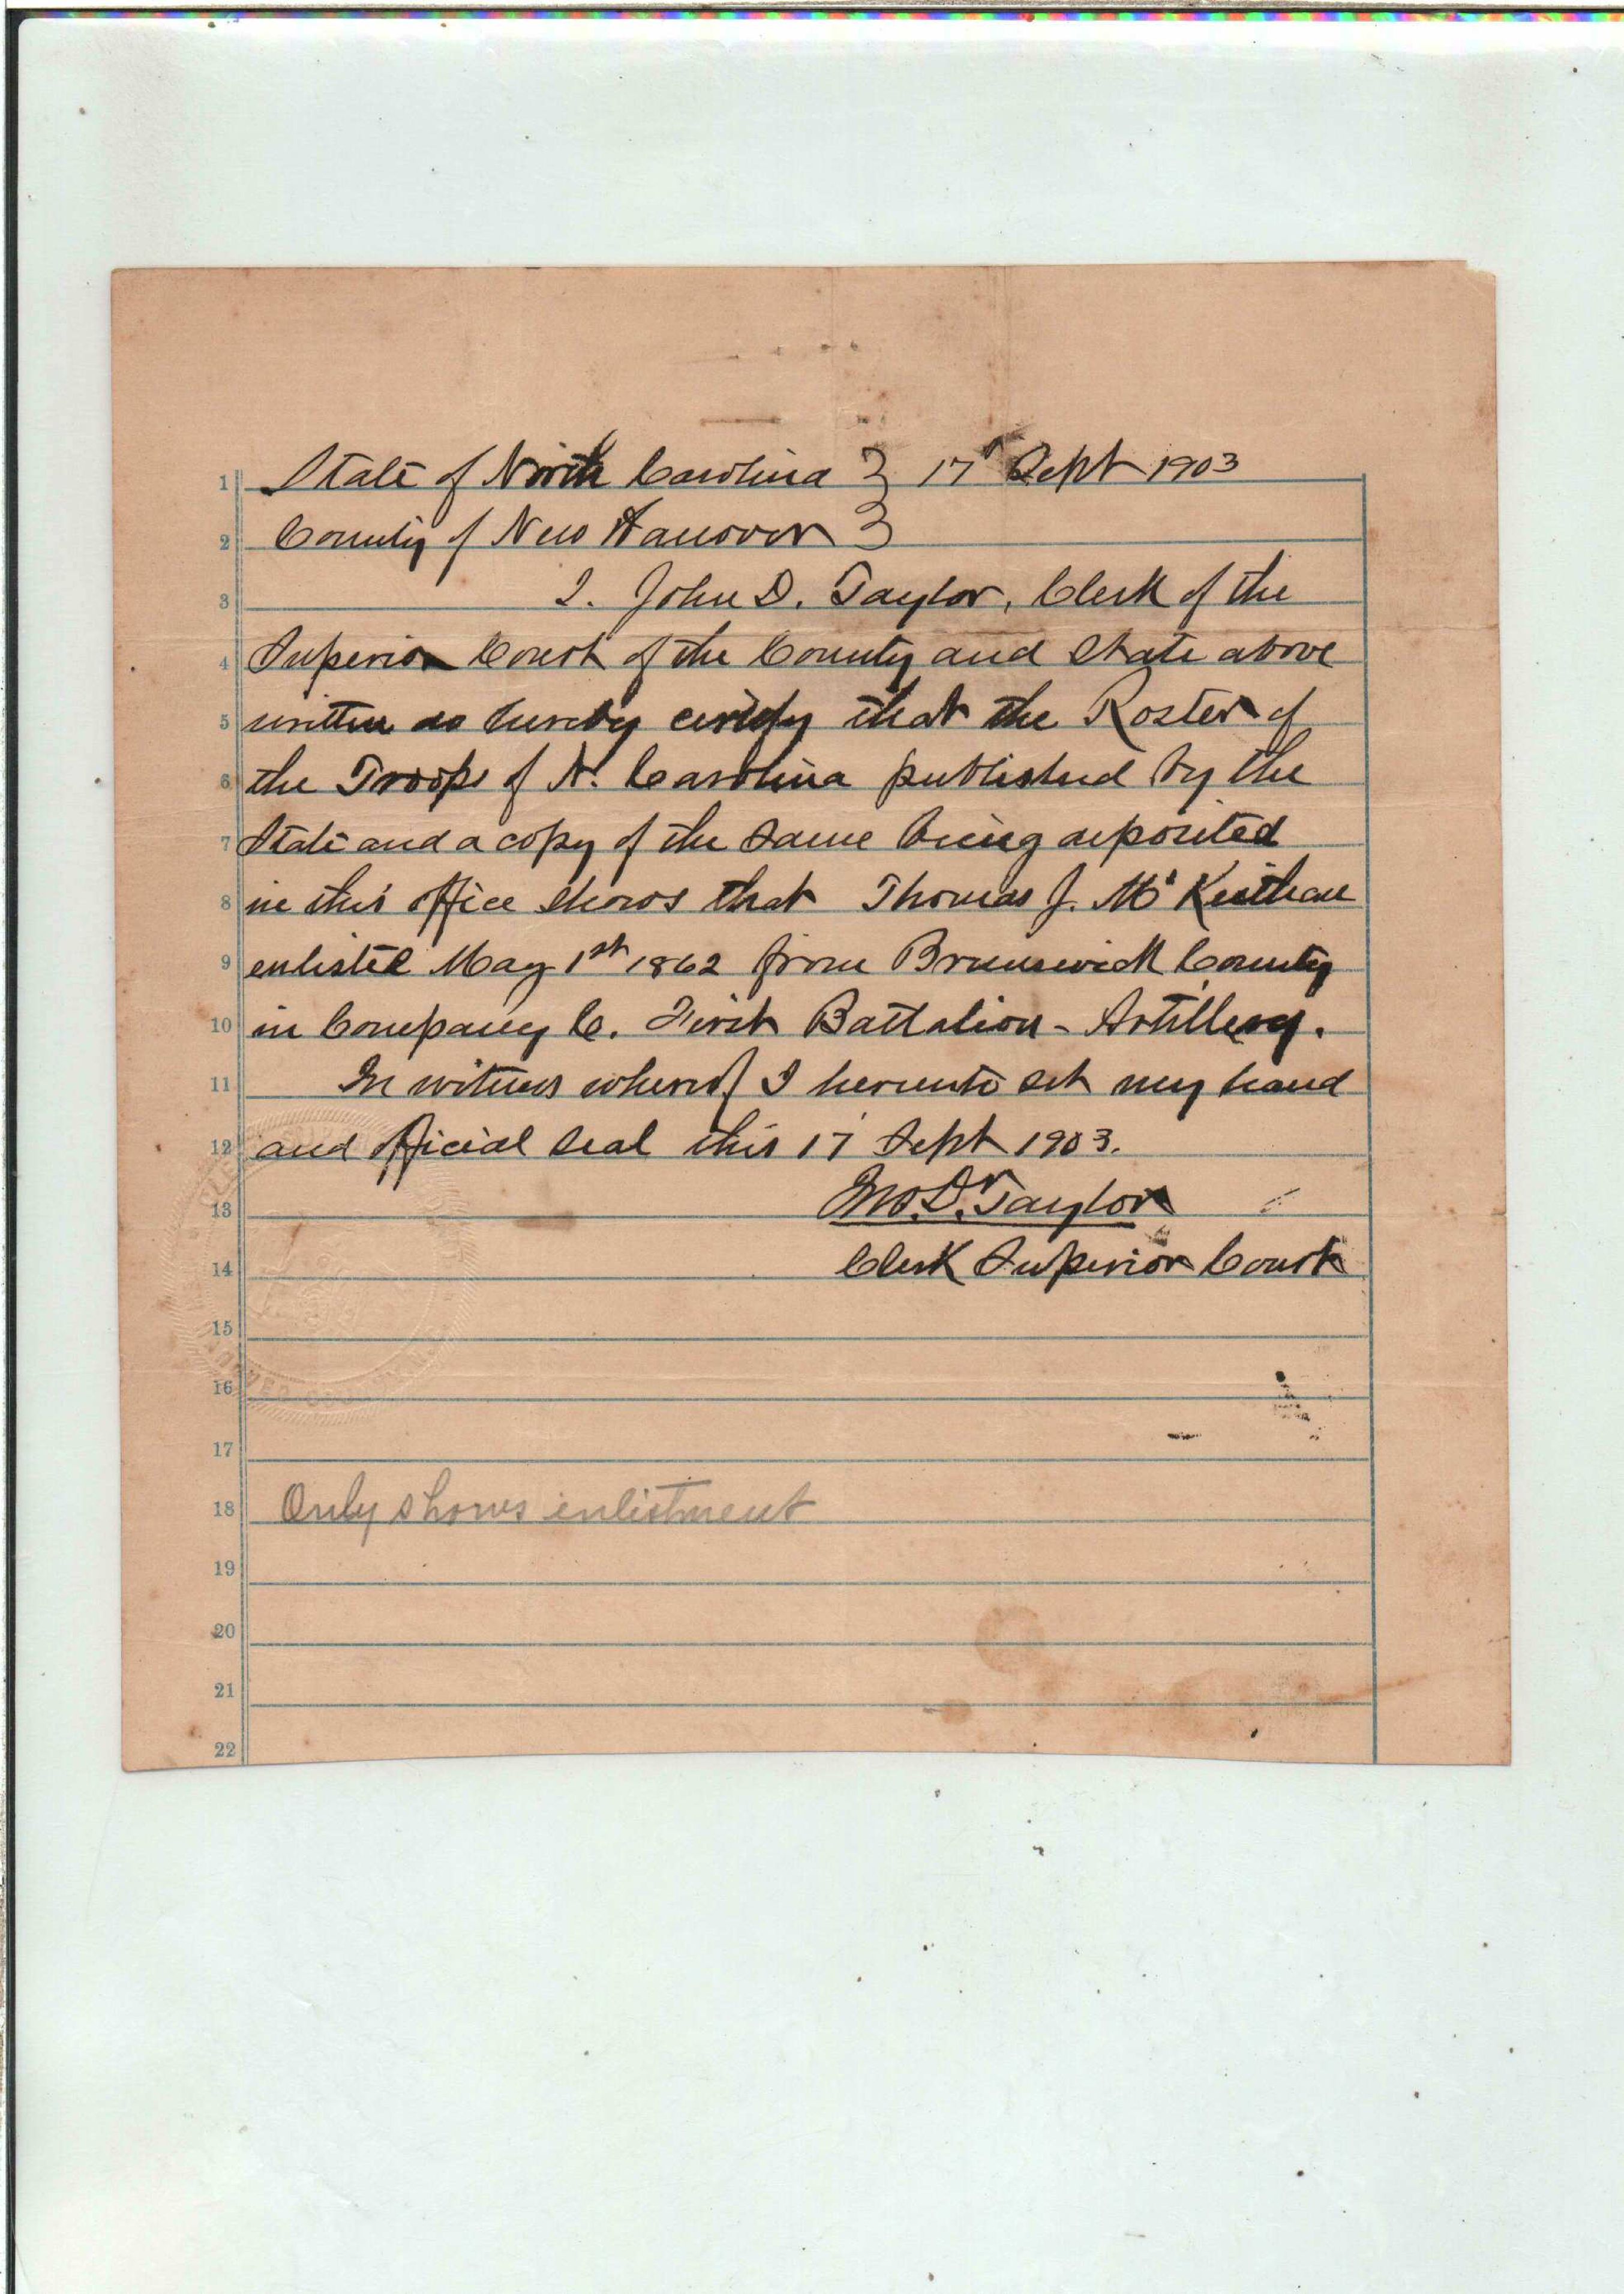 1 State of North Carolina } 17 Sept 1903
2 County of New Hanover }
3 I. John D. Taylor, Clerk of the
4 Superior Court of the County and State above
5 written do hereby certify that the Roster of
6 the Troops of N. Carolina published by the
7 State and a copy of the same being deposited
8 in this office shows that Thomas J. McKeithan
9 enlisted May 1st 1862 from Brunswick County
10 in Company C. First Battalion - Artillery.
11 In witness whereof I hereunto set my hand
12 and official seal this 17 Sept 1903.
13 Jno. D. Taylor
14 Clerk Superior Court
15
16
17
18 Only shows enlistment
19
20
21
22